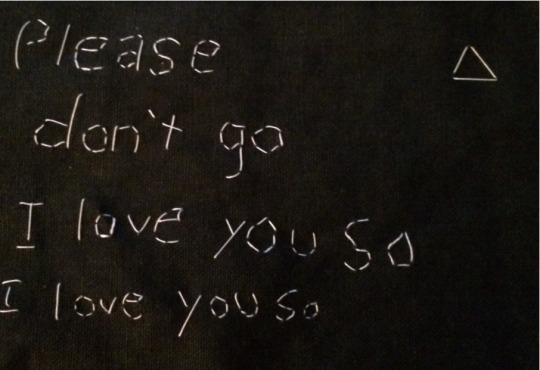 Please
don't go
I love you so
I love you so